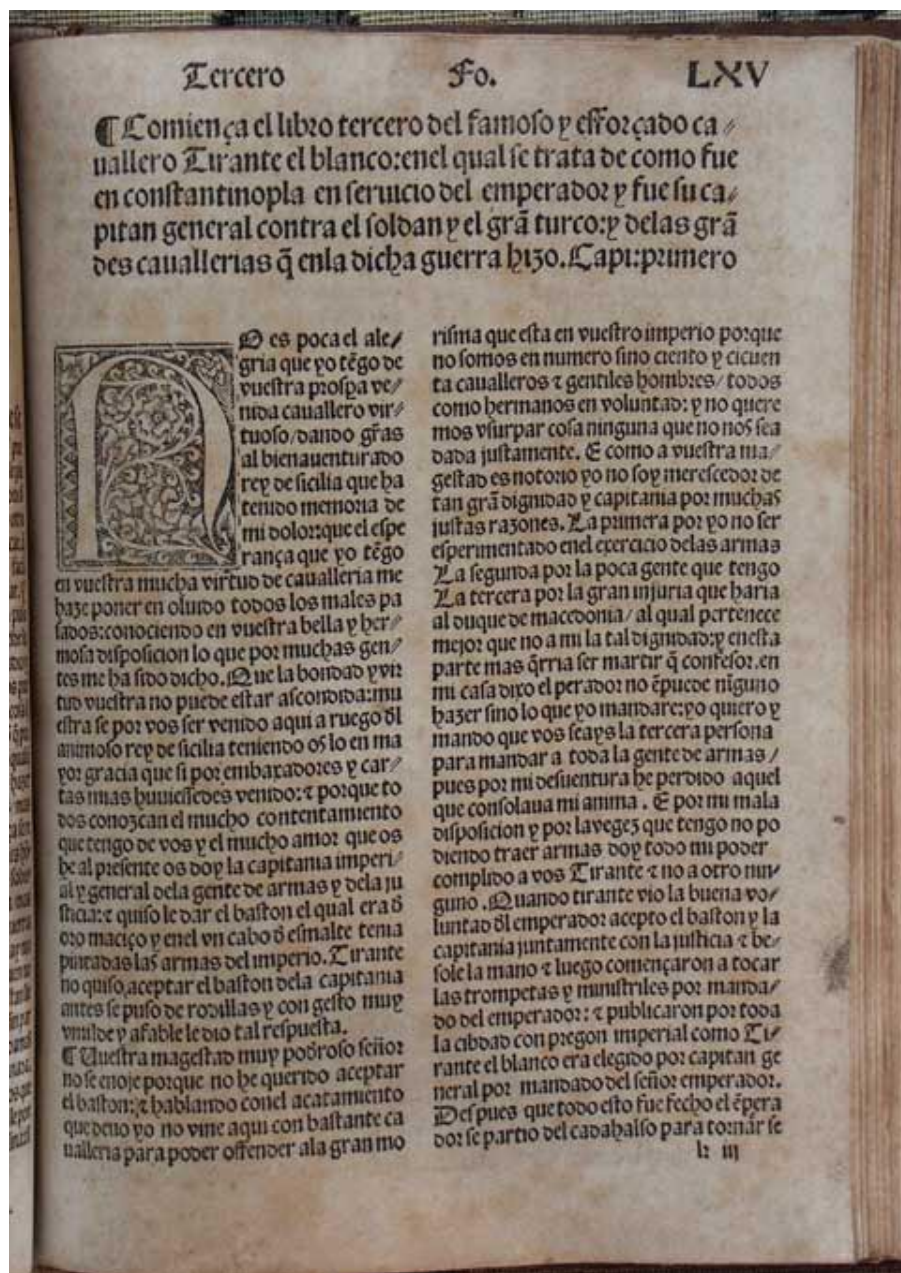 Tercero Fo. LXV
¶ Comiença el libro tercero del famoso y esforçado ca⸗
uallero Tirante el blanco:enel qual se trata de como fue
en constantinopla en seruicio del emperador y fue su ca⸗
pitan general contra el soldan y el grã turco:y delas grã
des cauallerias q̃ enla dicha guerra hizo. Capi:primero
NO es poca el ale⸗
gria que yo tẽgo de
vuestra prospa ve⸗
nida cauallero vir⸗
tuoso/dando gr̃as
al bienauenturado
rey de sicilia que ha
tenido memoria de
mi dolor:que el espe
rança que yo tẽgo
en vuestra mucha virtud de caualleria me
haze poner en oluido todos los males pa
sados:conociendo en vuestra bella y her⸗
mosa disposicion lo que por muchas gen⸗
tes me ha sido dicho. Que la bondad y vir
tud vuestra no puede estar ascondida:mu
estra se por vos ser venido aqui a ruego dl
animoso rey de sicilia teniendo os lo en ma
yor gracia que si por embaxadores y car⸗
tas mias huuiessedes venido:⁊ porque to
dos conozcan el mucho contentamiento
que tengo de vos y el mucho amor que os
he al presente os doy la capitania imperi⸗
al y general dela gente de armas y dela ju
sticia:⁊ quiso le dar el baston el qual era đ
oro maciço y enel vn cabo đ esmalte tenia
pintadas las armas del imperio. Tirante
no quiso aceptar el baston dela capitania
antes se puso de rodillas y con gesto muy
vmilde y afable le dio tal respuesta.
¶ Uuestra magestad muy podroso señor
no se enoje porque no he querido aceptar
el baston:⁊ hablando conel acatamiento
que deuo yo no vine aqui con bastante ca
ualleria para poder offender ala gran mo
risma que esta en vuestro imperio porque
no somos en numero sino ciento y cicuen
ta caualleros ⁊ gentiles hombres/ todos
como hermanos en voluntad: y no quere
mos vsurpar cosa ninguna que no nos sea
dada justamente. E como a vuestra ma⸗
gestad es notorio yo no soy merescedor de
tan grã dignidad y capitania por muchas
justas razones. La primera por yo no ser
esperimentado enel exercicio delas armas
La segunda por la poca gente que tengo
La tercera por la gran injuria que haria
al duque de macedonia/ al qual pertenece
mejor que no a mi la tal dignidad:y enesta
parte mas q̃rria ser martir q̃ confesor. en
mi casa dixo el perador no ẽpuede nĩguno
hazer sino lo que yo mandare:yo quiero y
mando que vos seays la tercera persona
para mandar a toda la gente de armas /
pues por mi desuentura he perdido aquel
que consolaua mi anima . E por mi mala
disposicion y por la vegez que tengo no po
diendo traer armas doy todo mi poder
complido a vos Tirante ⁊ no a otro nin⸗
guno . Quando tirante vio la buena vo⸗
luntad dl emperador acepto el baston y la
capitania juntamente con la justicia ⁊ be⸗
sole la mano ⁊ luego començaron a tocar
las trompetas y ministriles por manda⸗
do del emperador: ⁊ publicaron por toda
la cibdad con pregon imperial como Ti⸗
rante el blanco era elegido por capitan ge
neral por mandado del señor emperador.
Despues que todo esto fue fecho el ẽpera
dor se partio del cadahalso para tornar se
h iij